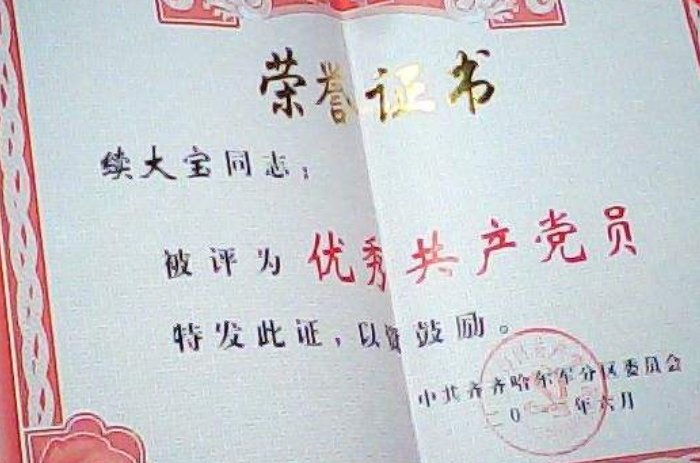 荣誉证书
续大宝同志：
被评为优秀共产党员
特发此证，以资鼓励。
中共齐齐哈尔军分区委员会
二0一二年六月